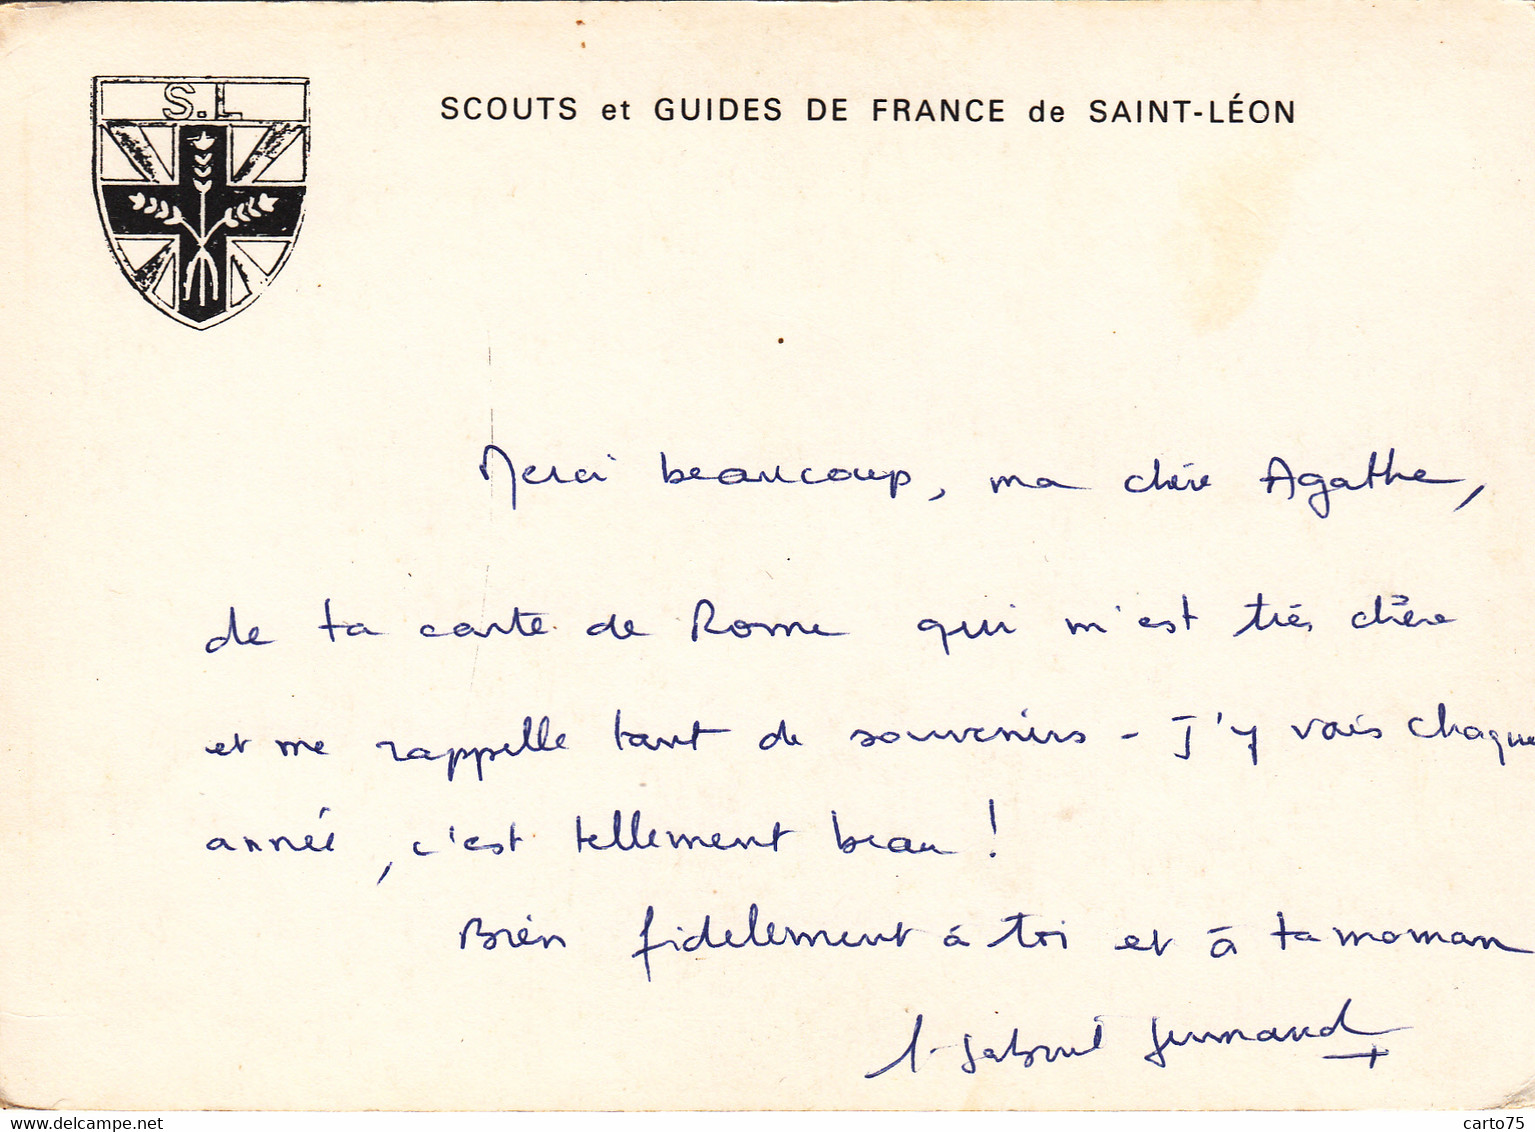 S.L
SCOUTS et GUIDES DE FRANCE de SAINT-LÉON
Merci beaucoup, ma chère Agathe,
de ta carte de Rome qui m'est très chère
et me rappelle tant de souvenirs - J'y vais chaque
année, c'est tellement beau !
Bien fidelement à toi et à ta maman
delcampe.net
carto75